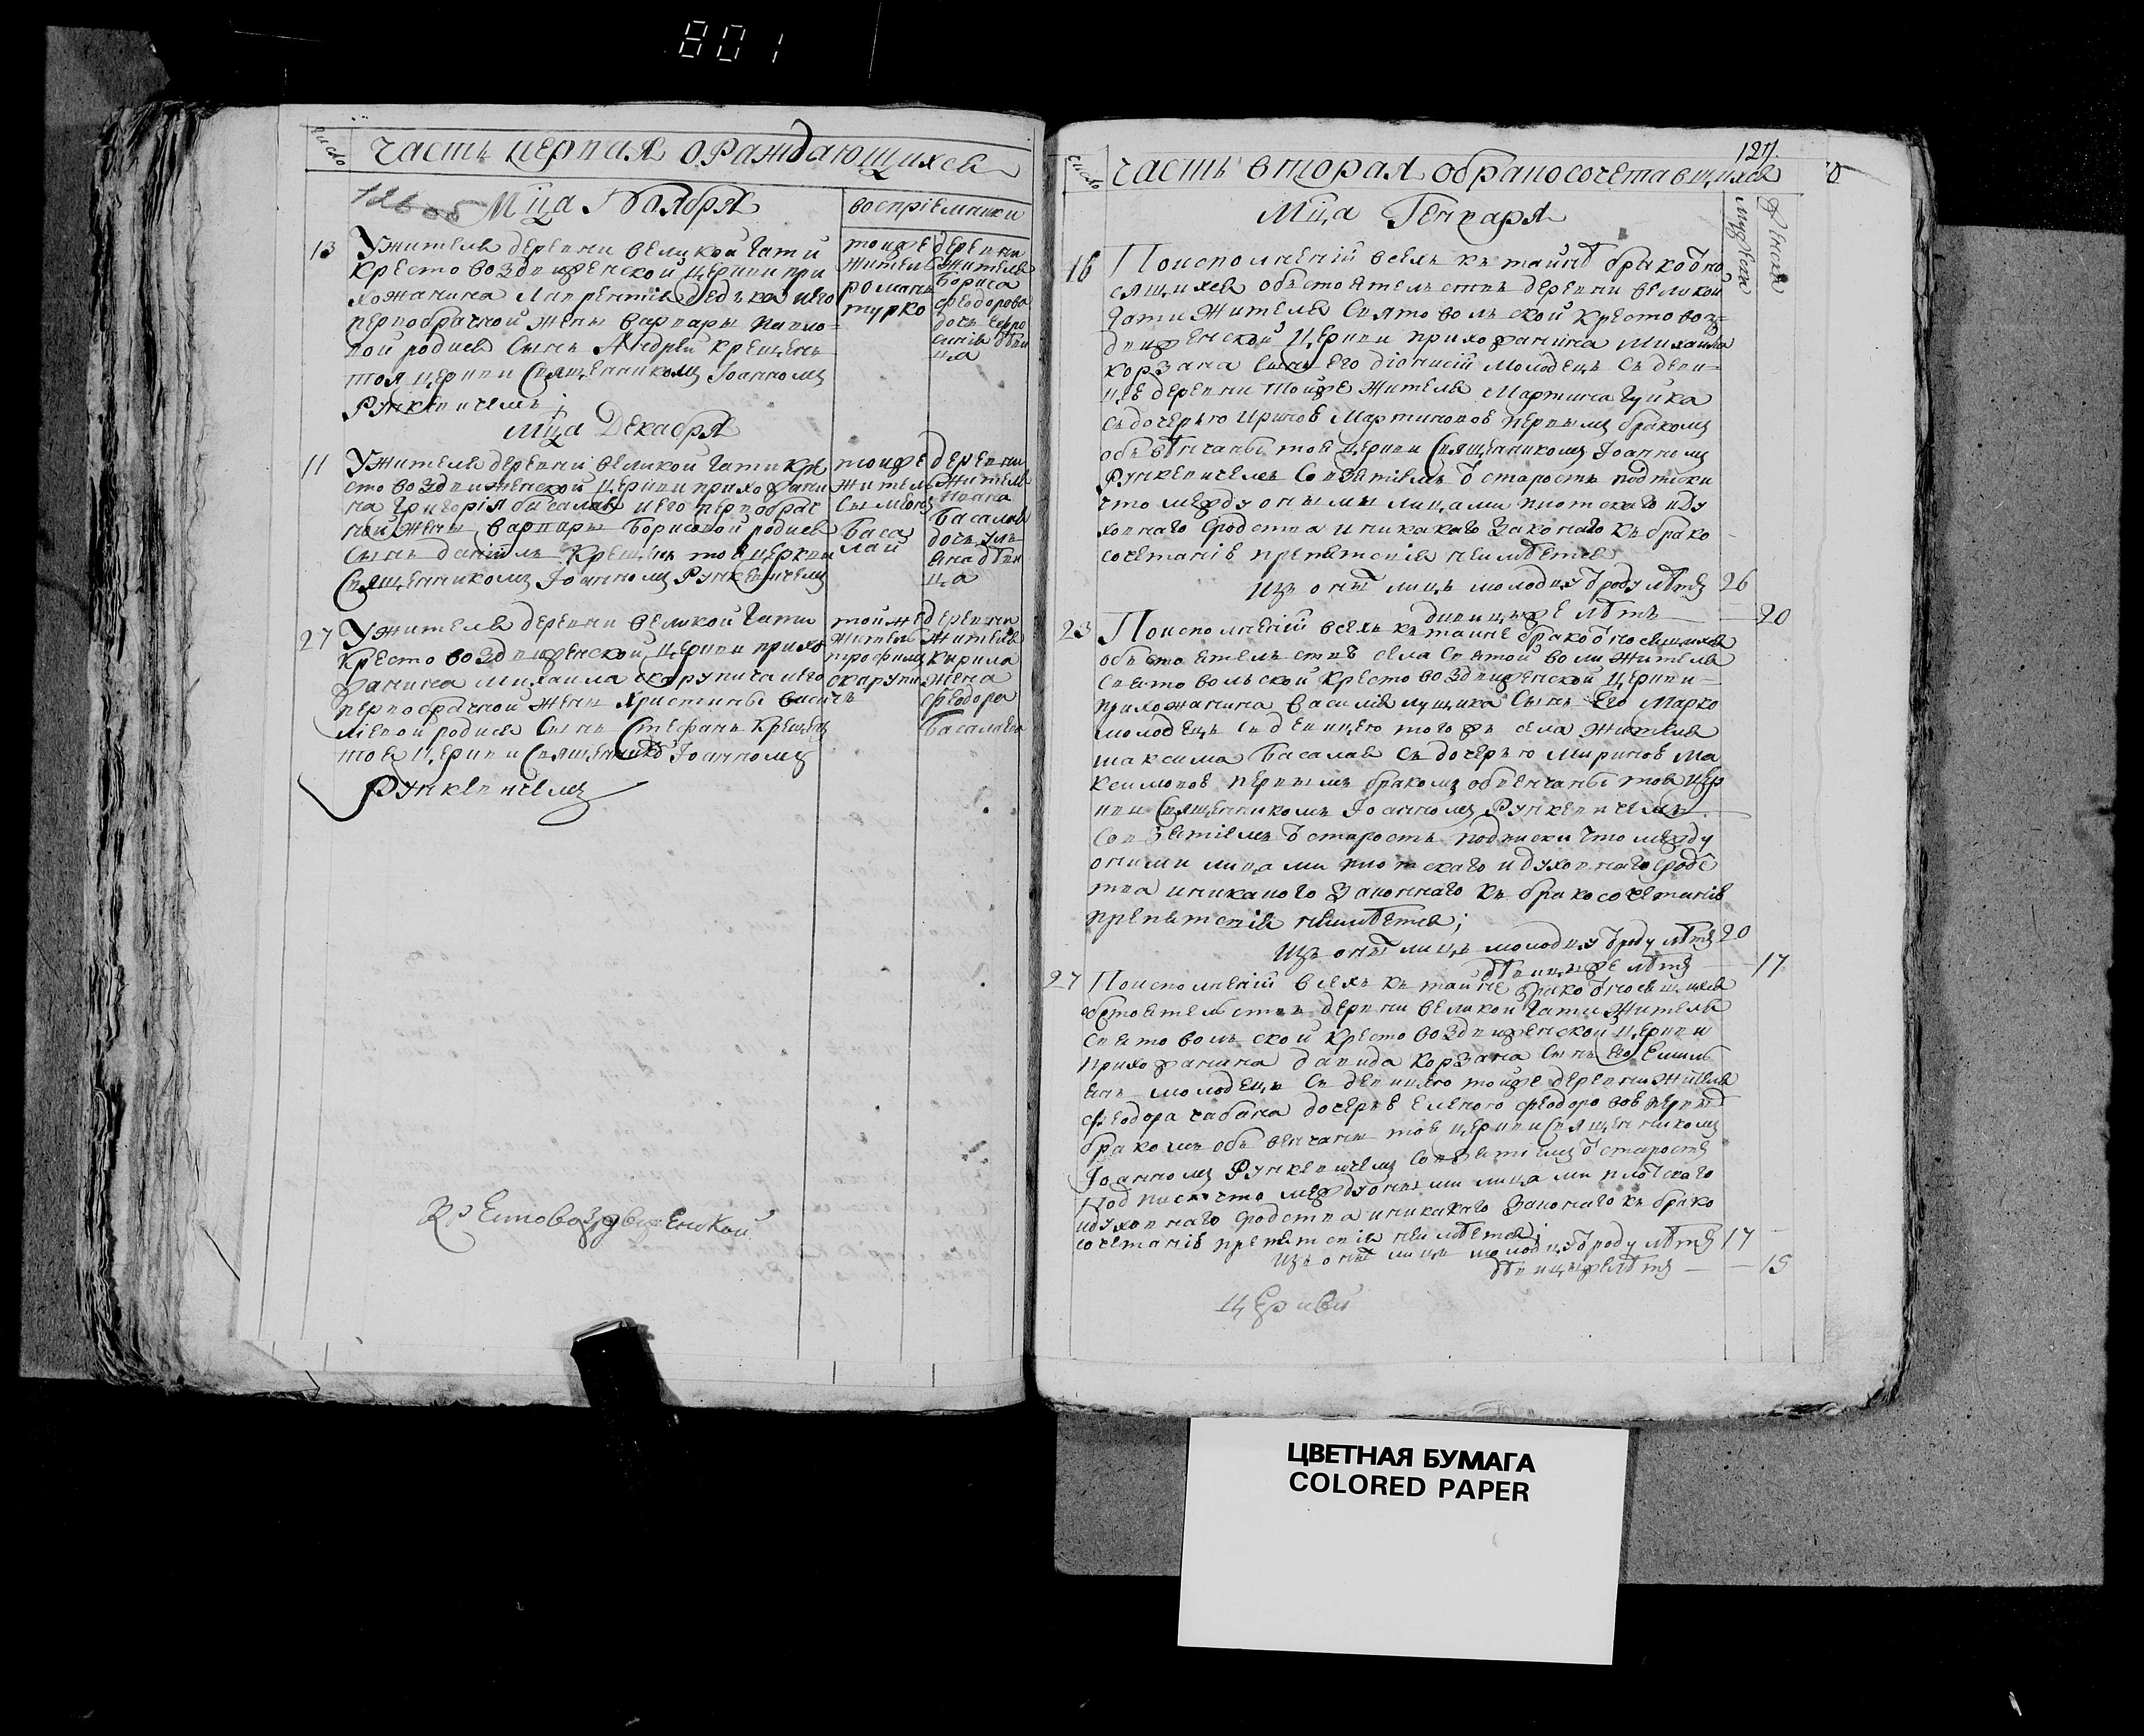 801
число
часть перпая о раждающихся
126 об Мца Ноября
воспріемники
13 У жителя деревни великой Гати
Крестовоздвиженской церкви при
хожанина Лаврентія Дедька и его
первобрачной жены Варвары Павло-
вой родися сынъ Андрей крещенъ
тоя церкви священникомъ Іоанномъ
Рункевичемъ;
тойже
житель
романъ
турко
деревни
жителя
Бориса
Феодорова
дочь
деви
ца
Мца Декабря
11 У жителя деревни великой Гати кре
стовоздвиженской церкви прихожани
на Григорія басалая и его первобрач
ной жены Варвары Борисовой родися
сынъ даніилъ крещенъ тоя церкви
священникомъ Іоанномъ Рункевичемъ
тойже
житель
Сымеонъ
баса
лай
деревни
жителя
Ивана
басалая
дочь улі
яна деви
ца
27 У жителя деревни великой Гати
Крестовоздвиженской церкви прихо
жанина михаила скарупича и его
первобрачной жены христины васи
ліевой родися сынъ Стефанъ крещенъ
тоя церкви священникомъ Іоанномъ
Рункевичемъ
тойже
житель
трофимъ
скарупи
чъ
деревни
жителя
Кирила
жена
феодора
басалаева
Крестовоздвиженской
127
число
часть вторая о бракосочетавшихся
Мца Генваря
мужеска
женска
16 По исполненій всехъ къ тайнѣ брака отно
сящихся обстоятельствъ деревни великой
Гати жителя Святовольской Крестовоз=
движенской церкви прихожанина Михаила
корзана сынъ его діонисій молодецъ съ деви=
цею деревни тойже жителя мартина Гуйка
съ дочерью Ириною Мартиновою первымъ бракомъ
обвѣнчаны тоя церкви священникомъ Іоанномъ
Рункевичемъ со взятіемъ от старостъ подписки
что между оными лицами плотскаго и ду
ховнаго сродства и никакаго законаго къ брако
сочетанію препятствія неимѣется
Изъ оныхъ лицъ молодцу от роду лѣтъ 26
дивицыже лѣтъ 20
23 По исполненій всехъ къ тайне брака относящихся
обстоятельствъ села Святой воли жителя
Святовольской крестовоздвиженской церкви
прихожанина василія лущика сынъ его Марко
молодецъ съ девицею тогожъ села жителя
максима басалая съ дочерью Мариною Ма
ксимовою первымъ бракомъ обвенчаны тоя цер
кви священникомъ Іоанномъ Рункевичемъ
со взятіемъ от старостъ подписки что между
оними лицами плотскаго и духовнаго сродс
тва и никакого законнаго къ бракосочетанію
препятствія неимѣется;
Изъ оныхъ лицъ молодцу от роду лѣтъ 20
дѣвицыже лѣтъ 17
27 По исполненій всехъ къ тайне брака относящихся
обстоятельствъ деревни великой Гати жителя
Святовольской Крестовоздвиженской церкви
прихожанина давида корзана сынъ его Емиль
янъ молодецъ съ девицею тойже деревни жителя
феодора чабана дочерью Еленою феодоровою первымъ
бракомъ обвенчаны тоя церкви священникомъ
Іоанномъ Рункевичемъ со взятіемъ от старостъ
подписки что между оными лицами плотскаго
и духовнаго сродства и никакаго законаго къ брако
сочетанію препятствія неимѣется;
Изъ оныхъ лицъ молодцу от роду лѣтъ 17
дѣвицыже лѣтъ 15
церкви
ЦВЕТНАЯ БУМАГА
COLORED PAPER